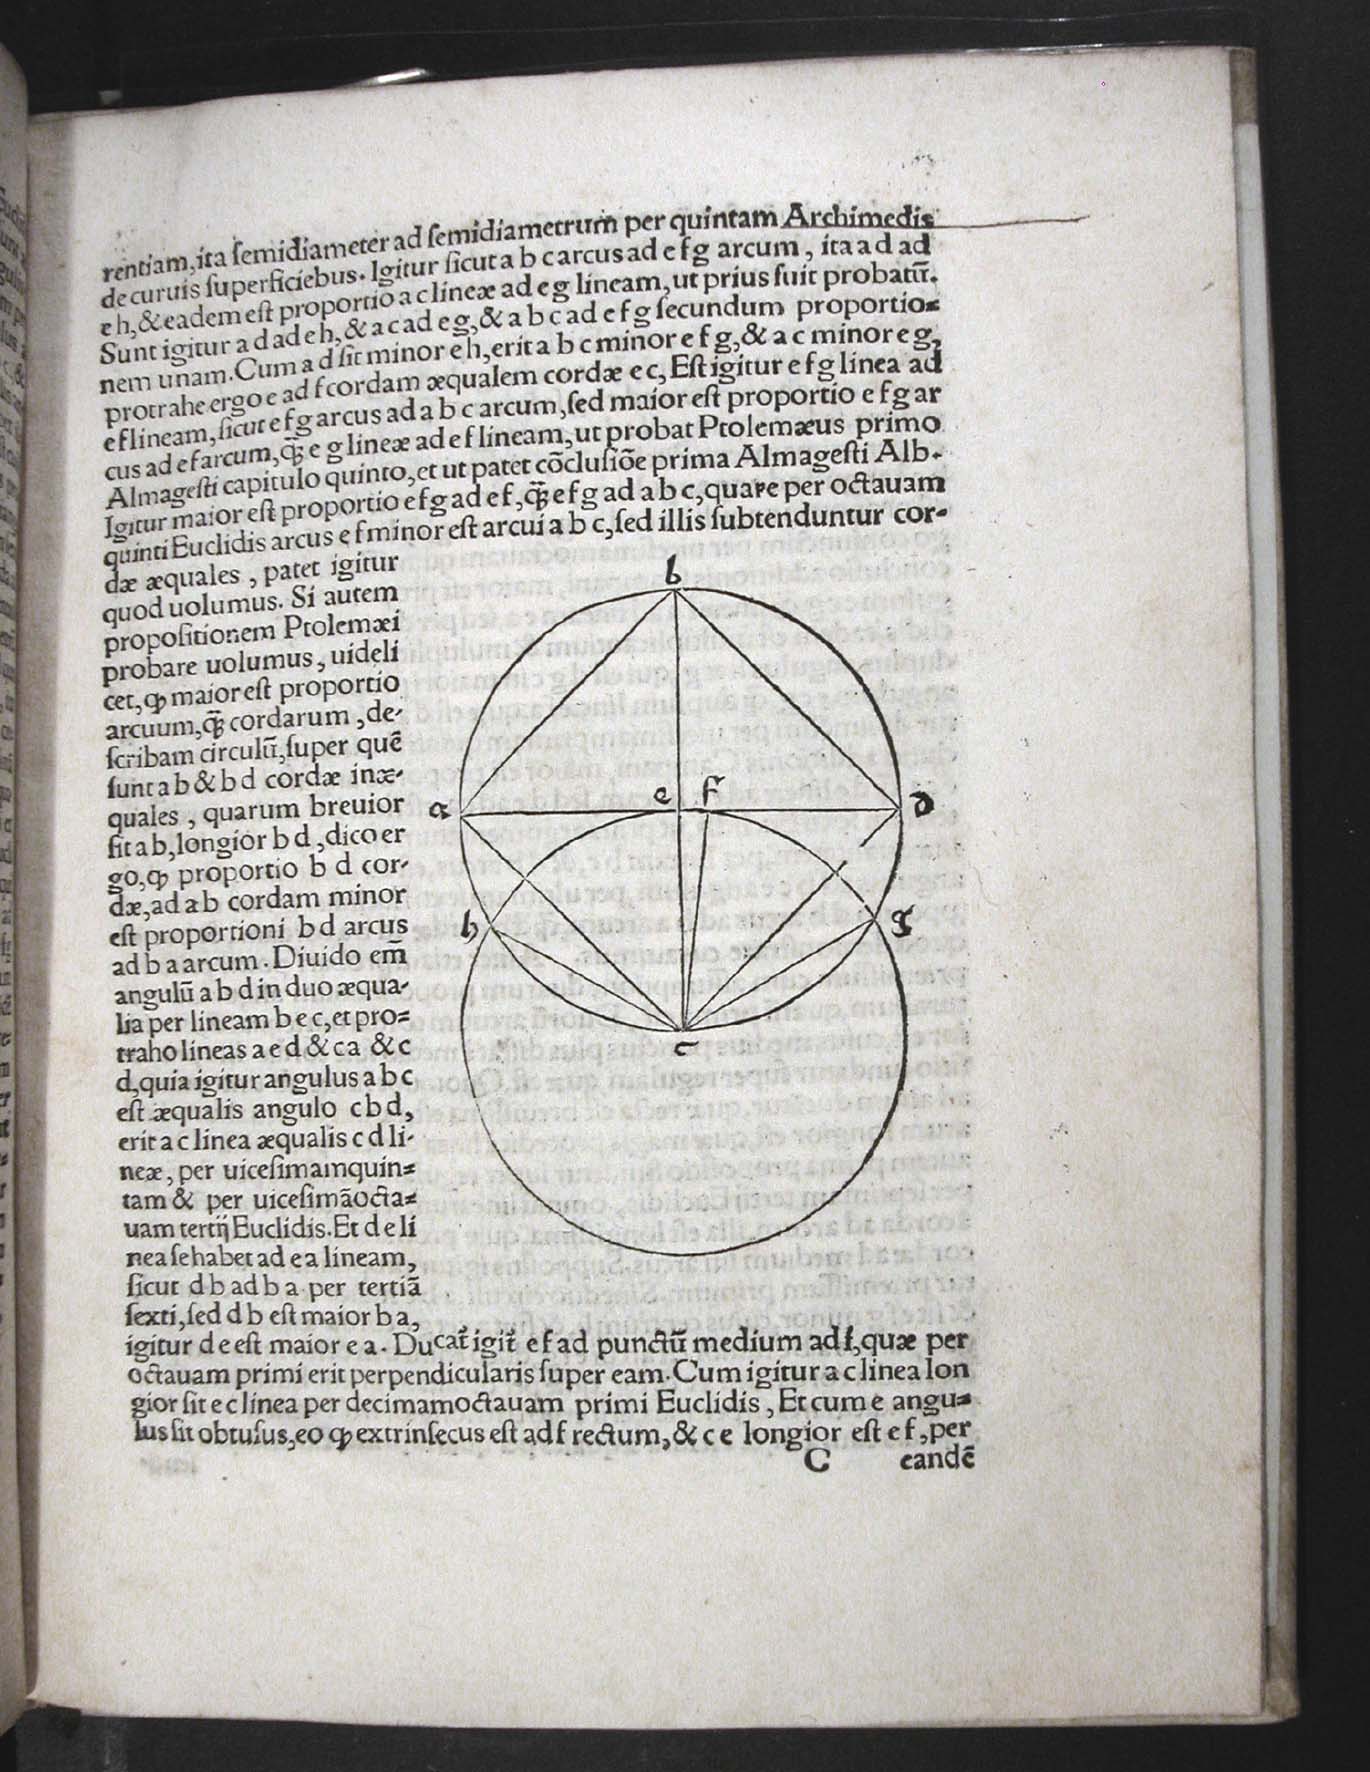 rentiam, ita ſemidiameter ad ſemidiametrum per quintam Archimedis
de curuis ſuperficiebus. Igitur ſicut a b c arcus ad e f g arcum, ita a d ad
e h, & eadem eſt proportio a c lineæ ad e g lineam, ut prius fuit probatū.
Sunt igitur a d ad e h, & a c ad e g, & a b c ad e f g ſecundum proportio=
nem unam. Cum a d ſit minor e h, erit a b c minor e f g, & a c minor e g,
protrahe ergo e ad f cordam æqualem cordæ e c, Eſt igitur e f g linea ad
e f lineam, ſicut e f g arcus ad a b c arcum, ſed maior eſt proportio e f g ar
cus ad e f arcum, q̄ꝫ e g lineæ ad e f lineam, ut probat Ptolemæus primo
Almageſti capitulo quinto, et ut patet cōcluſiōe prima Almageſti Alb.
Igitur maior eſt proportio e f g ad e f, q̄ꝫ e f g ad a b c, quare per octauam
quinti Euclidis arcus e f minor eſt arcui a b c, ſed illis ſubtenduntur cor-
dæ æquales, patet igitur
quod uolumus. Si autem
propoſitionem Ptolemæi
probare uolumus, uideli
cet, ꝙ maior eſt proportio
arcuum, q̄ꝫ cordarum, de-
ſcribam circulū, ſuper quē
ſunt a b & b d cordæ inæ-
quales, quarum breuior
ſit a b, longior b d, dico er
go, ꝙ proportio b d cor-
dæ, ad a b cordam minor
eſt proportioni b d arcus
ad b a arcum. Diuido em̄
angulū a b d in duo æqua-
lia per lineam b e c, et pro=
traho lineas a e d & c a & c
d, quia igitur angulus a b c
eſt æqualis angulo c b d,
erit a c linea æqualis c d li-
neæ, per uiceſimamquin=
tam & per uiceſimāocta=
uam tertij Euclidis. Et d e li
nea ſe habet ad e a lineam,
ſicut d b ad b a per tertiā
ſexti, ſed d b eſt maior b a,
igitur d e eſt maior e a. Ducat̄ igit̄ e f ad punctū medium a d f, quæ per
octauam primi erit perpendicularis ſuper eam. Cum igitur a c linea lon
gior ſit e c linea per decimamoctauam primi Euclidis, Et cum e angu=
lus ſit obtuſus, eo ꝙ extrinſecus eſt a d f rectum, & c e longior eſt e f, per
C eandē
b
a e f d
h g
c